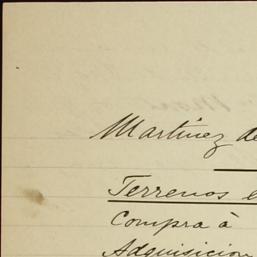 Martinez de
Terrenos
Compra à
Adquisicion